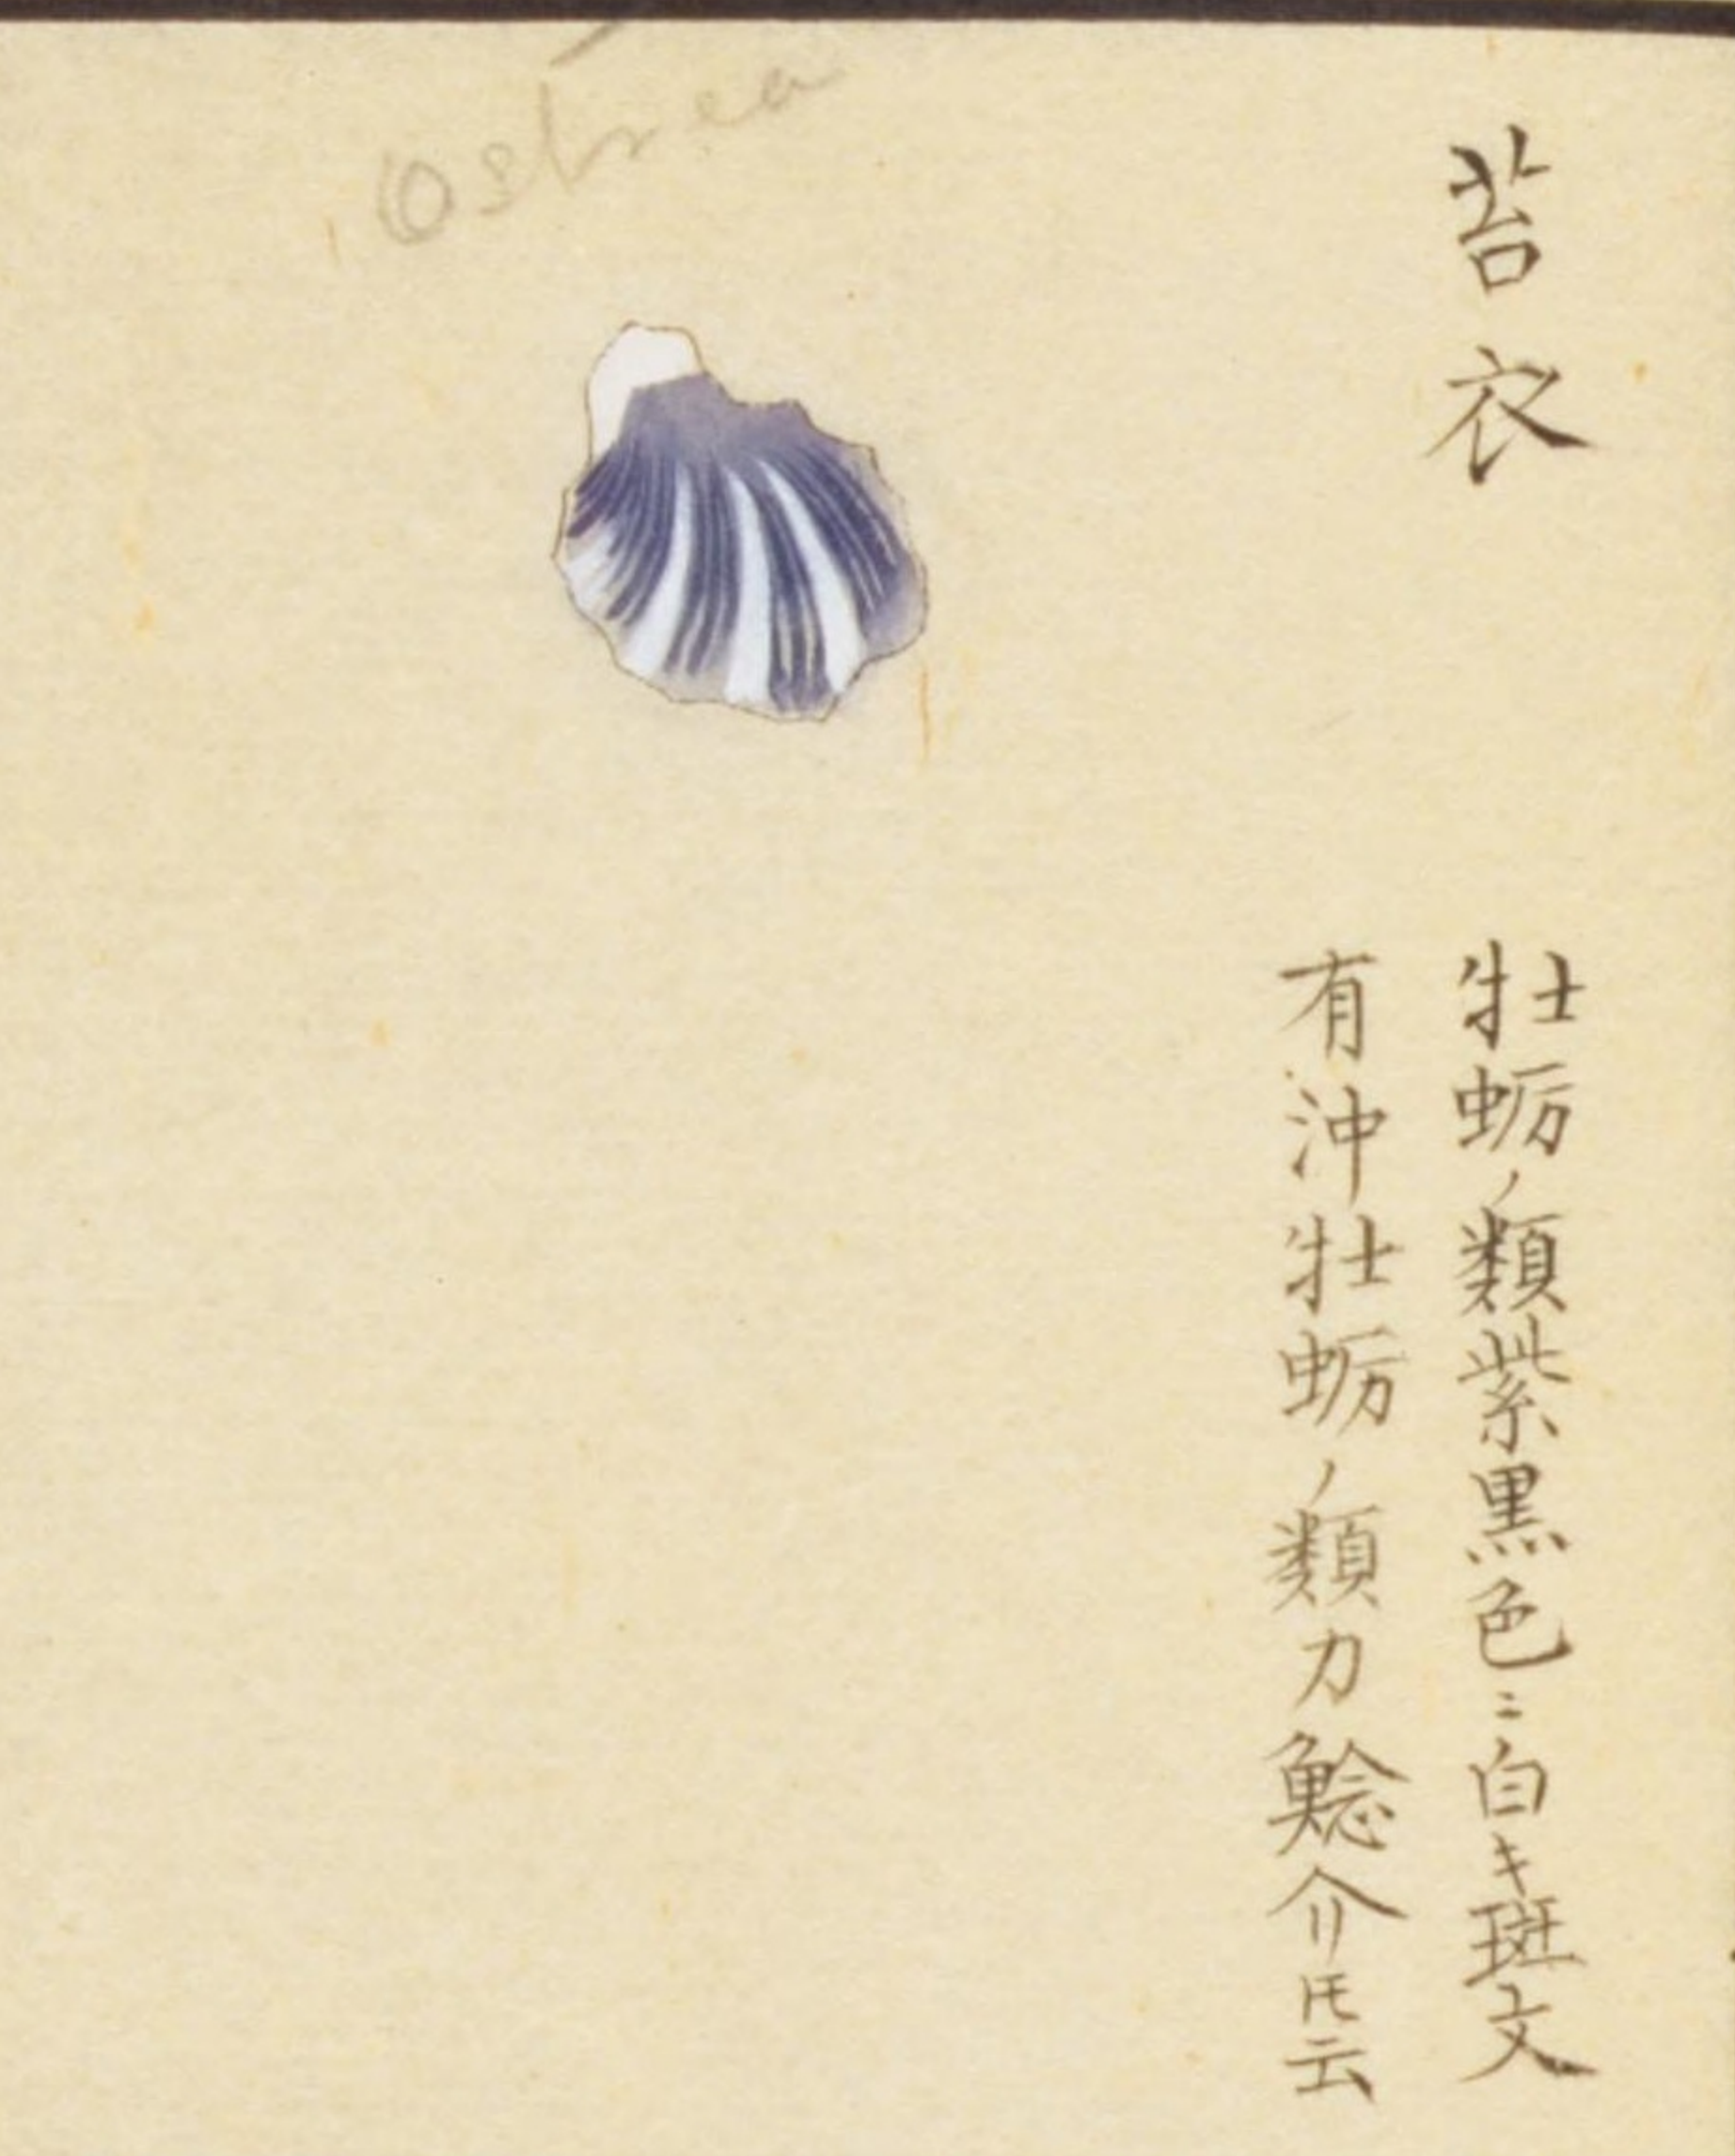 Ostrea
苔衣
牡蛎ノ類紫黒色ニ白キ斑文
有沖牡蛎ノ類カ鯰介𪜈云